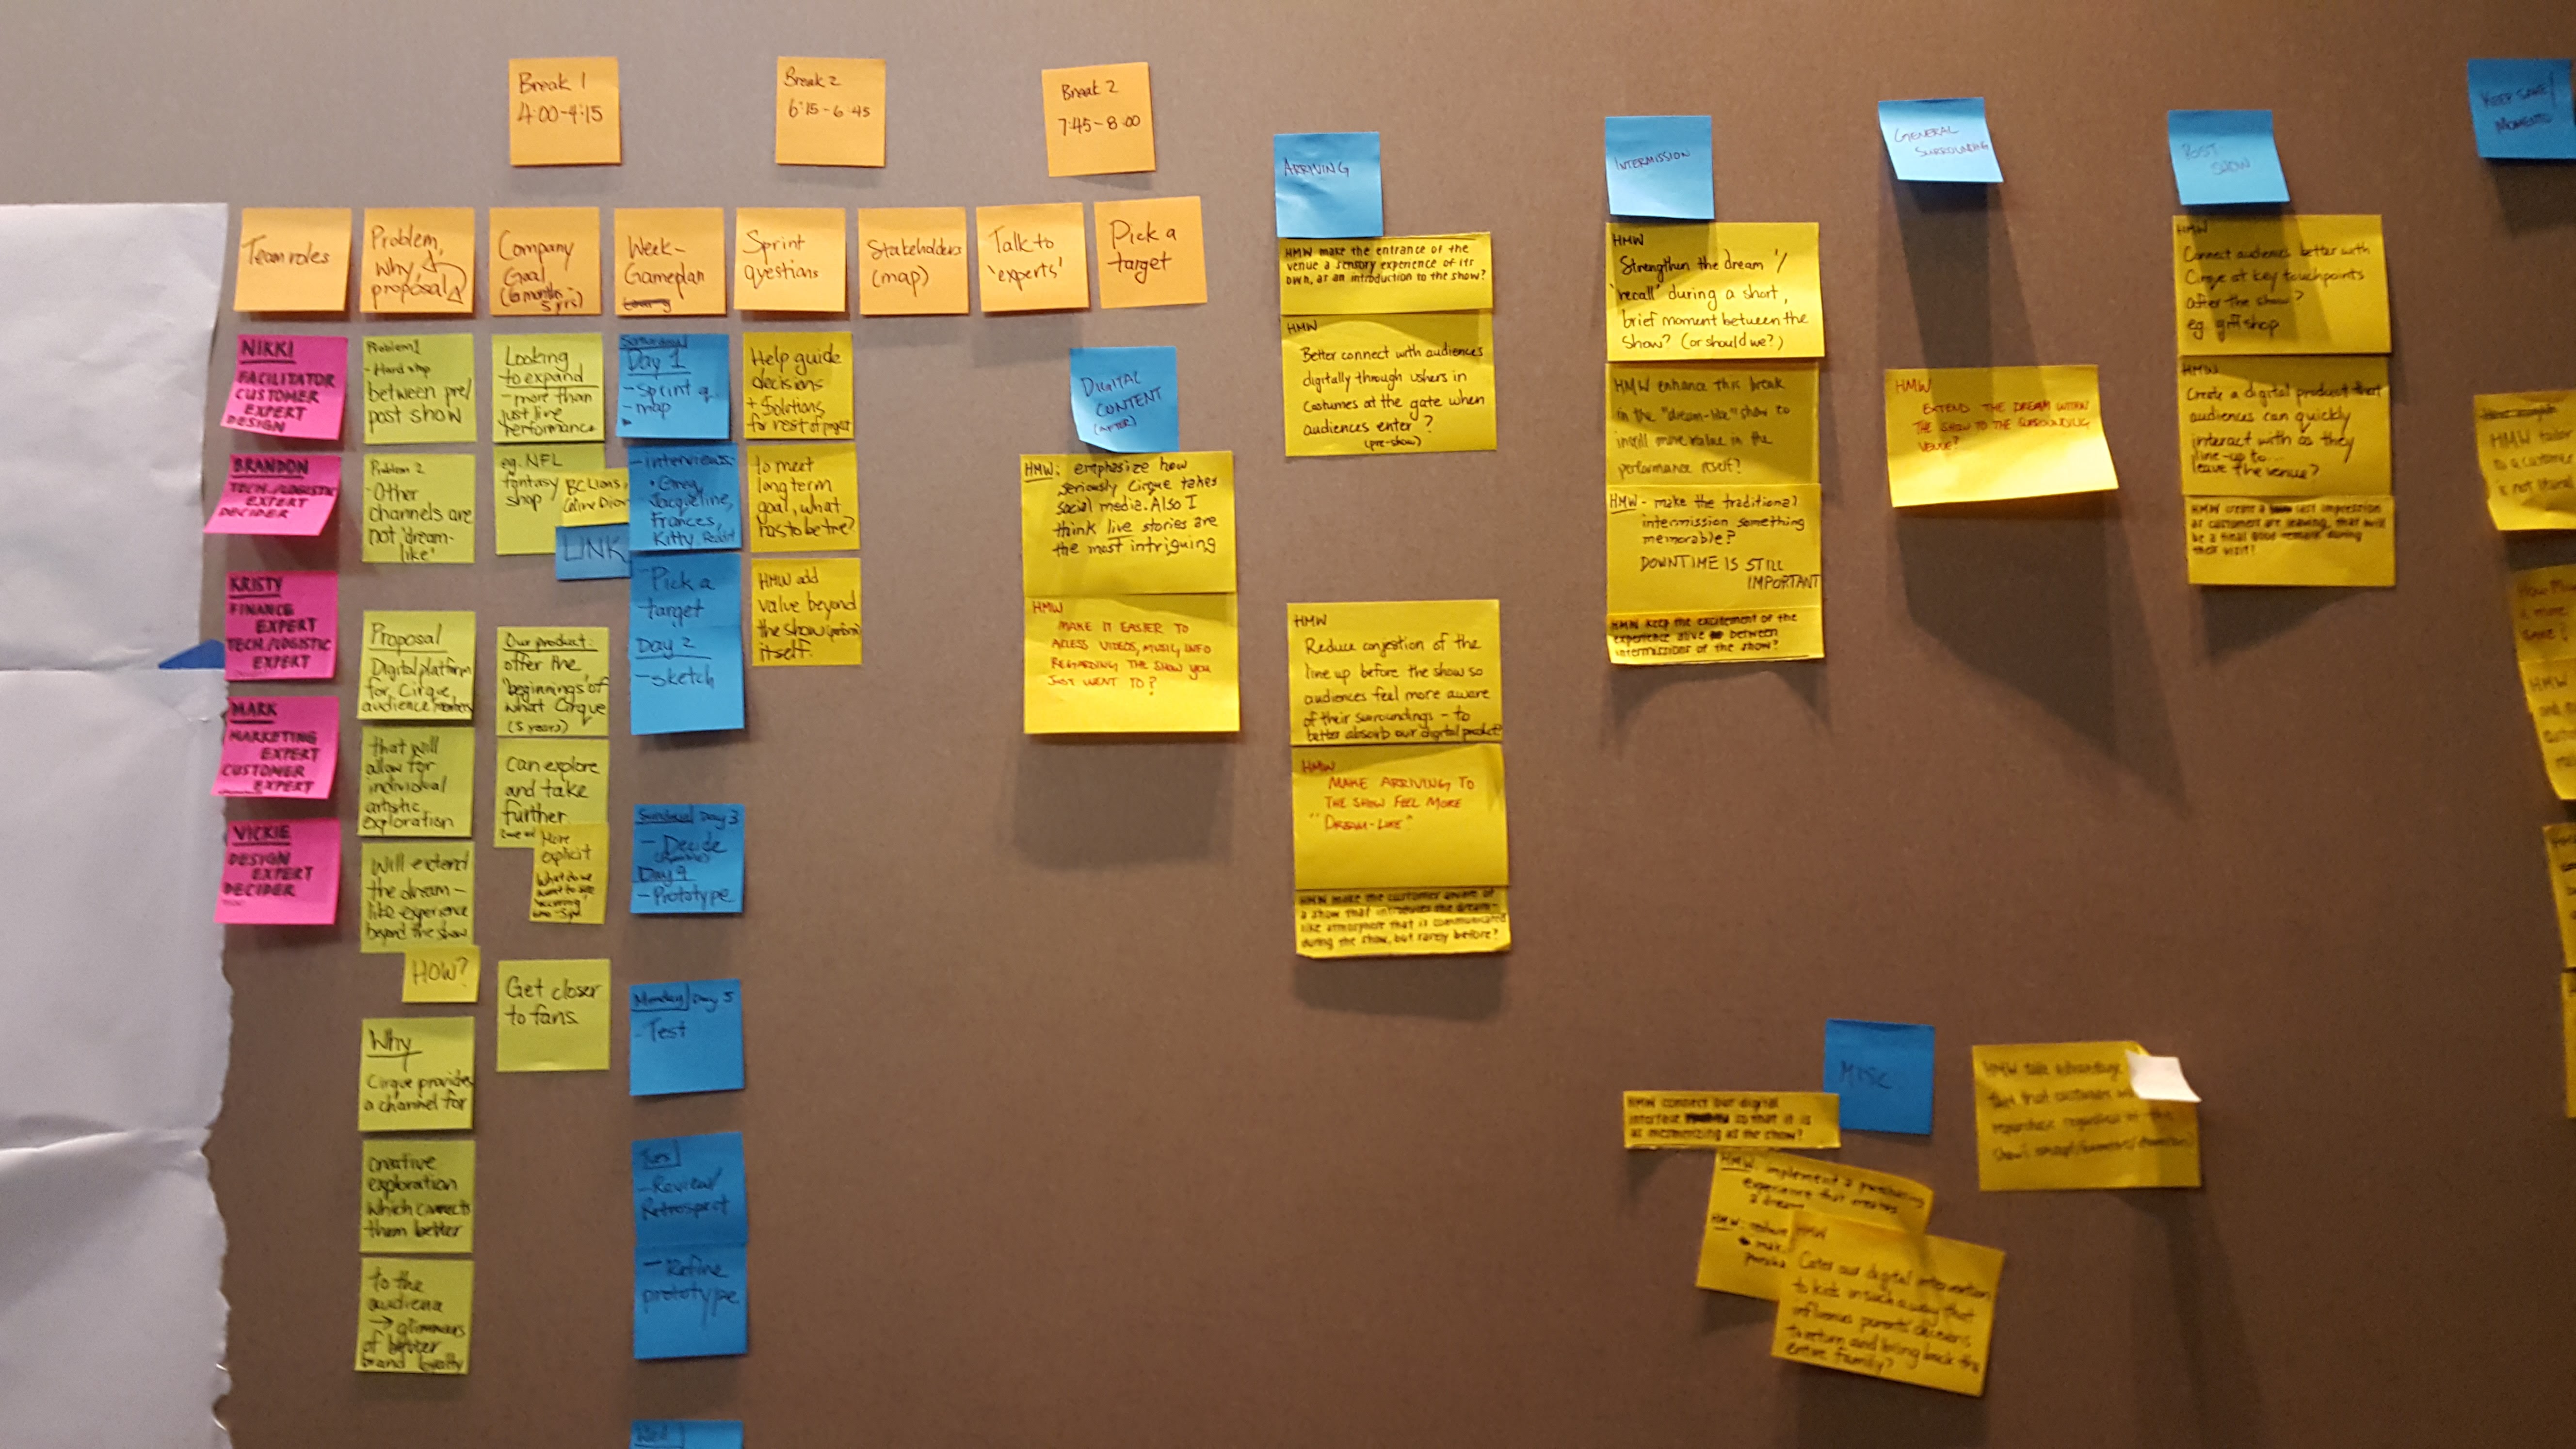 Break 1
4:00-4:15
Break 2
6:15-6:45
Break 2
7:45-8:00
Team roles
Problem,
why,
proposal
Company
Goal
(6 months -
5 yrs)
Week-
Gameplan
Sprint
questions
Stakeholders
(map)
Talk to
'experts'
Pick a
target
NIKKI
FACILITATOR
CUSTOMER
EXPERT
DESIGN
BRANDON
TECH./LOGISTIC
EXPERT
DECIDER
KRISTY
FINANCE
EXPERT
TECH./LOGISTIC
EXPERT
MARK
MARKETING
EXPERT
CUSTOMER
EXPERT
VICKIE
DESIGN
EXPERT
DECIDER
Problem 1
- Hard stop
between pre/
post show
Problem 2
- Other
channels are
not 'dream-
like'
Proposal
Digital platform
for Cirque
audience members
that will
allow for
individual
artistic
exploration
will extend
the dream-
like experience
beyond the show
HOW?
Why
Cirque provides
a channel for
creative
exploration
which connects
them better
to the
audience
→ glimmers
of better
brand loyalty
Looking
to expand
- more than
just live
performance
eg. NFL
fantasy
shop
BC Lions,
Celine Dion
LINK
Our product:
offer the
'beginnings' of
what Cirque
(5 years)
can explore
and take
further
More
explicit
What do we
want to see
Get closer
to fans.
Saturday
Day 1
- Sprint q.
- map
- interviews:
• Greg,
Jacqueline,
Frances,
Kitty, Reddit
- Pick a
target
Day 2
- sketch
Sunday Day 3
- Decide
Day 4
- Prototype
Monday Day 5
- Test
Tues
- Review/
Retrospect
- Refine
prototype
Wed
Help guide
decisions
+ Solutions
for rest of project
to meet
long term
goal, what
has to be true?
HMW add
value beyond
the show
itself.
DIGITAL
CONTENT
(AFTER)
HMW: emphasize how
seriously Cirque takes
social media. Also I
think live stories are
the most intriguing
HMW
MAKE IT EASIER TO
ACCESS VIDEOS, MUSIC, INFO
REGARDING THE SHOW YOU
JUST WENT TO?
ARRIVING
HMW make the entrance of the
venue a sensory experience of its
own, as an introduction to the show?
HMW
Better connect with audiences
digitally through ushers in
costumes at the gate when
audiences enter?
(pre-show)
HMW
Reduce conjestion of the
line up before the show so
audiences feel more aware
of their surroundings - to
better absorb our digital product?
HMW
MAKE ARRIVING TO
THE SHOW FEEL MORE
"DREAM-LIKE"
HMW make the customer aware of
a show that introduces the dream-
like atmosphere that is communicated
during the show, but rarely before?
INTERMISSION
HMW
Strengthen the dream '/
'recall' during a short,
brief moment between the
show? (or should we?)
HMW enhance this break
in the "dream-like" show to
instill more value in the
performance itself?
HMW - make the traditional
intermission something
memorable?
DOWNTIME IS STILL
IMPORTANT
HMW keep the excitement of the
experience alive between
intermissions of the show?
GENERAL
SURROUNDING
HMW
EXTEND THE DREAM WITHIN
THE SHOW TO THE SURROUNDING
VENUE?
POST
SHOW
HMW
Connect audiences better with
Cirque at key touchpoints
after the show?
eg. gift shop
HMW
Create a digital product that
audiences can quickly
interact with as they
line-up to...
leave the venue?
HMW create a last impression
as customers are leaving, that will
be a final good remark during
their visit?
KEEP SAKE/
MOMENTO
HMW tailor
to a customer
is not literal
MISC
HMW connect our digital
interface so that it is
as mesmerizing as the show?
HMW implement a purchasing
experience that creates
a dream
HMW take advantage
that customers
repurchase regardless of the
HMW
Cater our digital intervention
to kids in such a way that
influences parents' decisions
to return and bring back the
entire family?